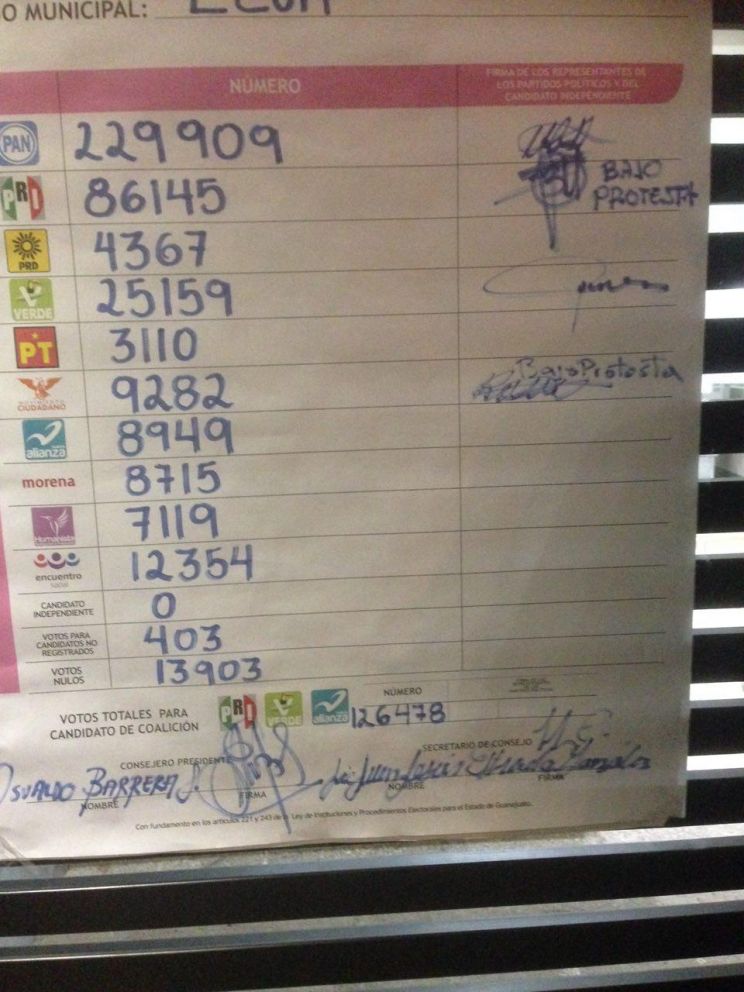 O MUNICIPAL: LEON
NÚMERO
FIRMA DE LOS REPRESENTANTES DE
LOS PARTIDOS POLÍTICOS Y DEL
CANDIDATO INDEPENDIENTE
PAN 229909
PRI 86145
BAJO
PROTESTA
PRD 4367
VERDE 25159
PT 3110
Bajo Protesta
MOVIMIENTO
CIUDADANO 9282
alianza 8949
morena 8715
Humanista 7119
encuentro
social 12354
CANDIDATO
INDEPENDIENTE 0
VOTOS PARA
CANDIDATOS NO
REGISTRADOS 403
VOTOS
NULOS 13903
VOTOS TOTALES PARA
CANDIDATO DE COALICIÓN
PRI VERDE alianza
NÚMERO
126478
CONSEJERO PRESIDENTE
SECRETARIO DE CONSEJO
OSVALDO BARRERA
NOMBRE FIRMA NOMBRE FIRMA
Con fundamento en los artículos 221 y 243 de la Ley de Instituciones y Procedimientos Electorales para el Estado de Guanajuato.